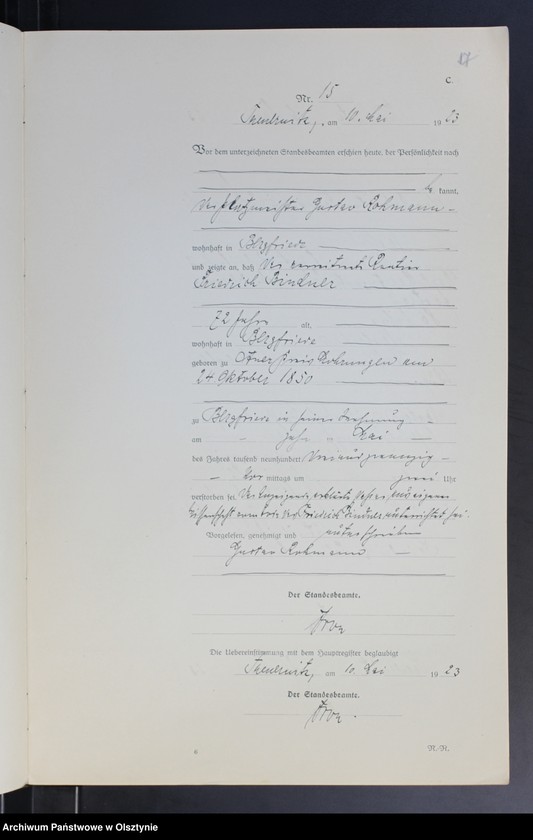 C.
Nr. 15
Theuernitz, am 10. Mai 1923
Vor dem unterzeichneten Standesbeamten erschien heute, der Persönlichkeit nach
kannt,
Gustav Rohmann
wohnhaft in Bergfriede
und zeigte an, daß der Rentier
Friedrich Bindner
72 Jahre alt,
wohnhaft in Bergfriede
geboren zu Kreis Mohrungen am
24 Oktober 1850
zu Bergfriede in seiner Wohnung
am Mai
des Jahres tausend neunhundert dreiundzwanzig
Vor mittags um zwei Uhr
verstorben sei. Der Anzeigende erklärte, daß er aus eigener
Wissenschaft vom Tode des Friedrich Bindner unterrichtet sei.
Vorgelesen, genehmigt und unterschrieben
Gustav Rohmann
Der Standesbeamte.
Die Uebereinstimmung mit dem Hauptregister beglaubigt
Theuernitz, am 10. Mai 1923
Der Standesbeamte.
6
N.N.
Archiwum Państwowe w Olsztynie